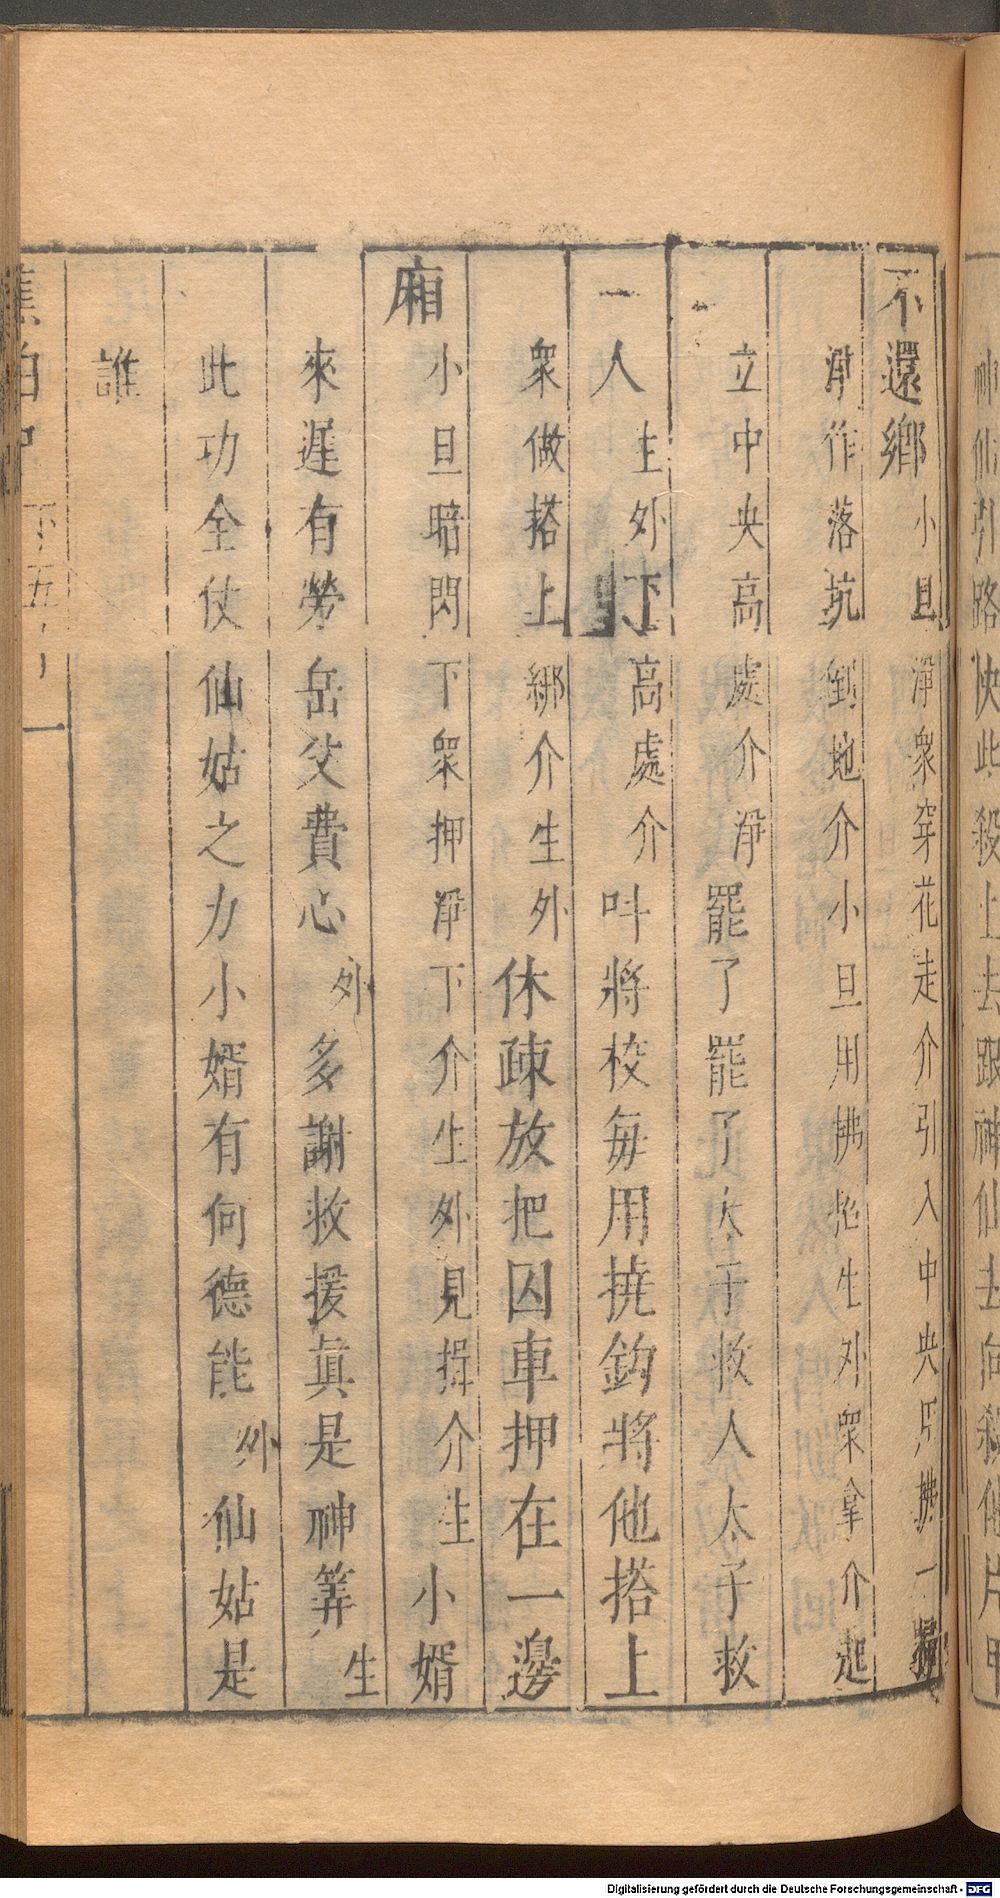 不還鄉小旦淨衆穿花走介引入中央用拂一
淨作落坑倒地介小旦用拂抬生外衆拿介起
立中央高處介淨罷了罷了太子救人太子救
一人生外下高處介叫將校每用撓鈎將他搭上
衆做搭上綁介生外休疎放把囚車押在一邊
廂小旦暗閃下衆押淨下介生外見揖介生小婿
來遲有勞岳父費心外多謝救援眞是神筭生
此功全仗仙姑之力小壻有何德能外仙姑是
誰
下五
神仙引路快些殺上去跟神仙去
Digitalisierung gefördert durch die Deutsche Forschungsgemeinschaft - DFG